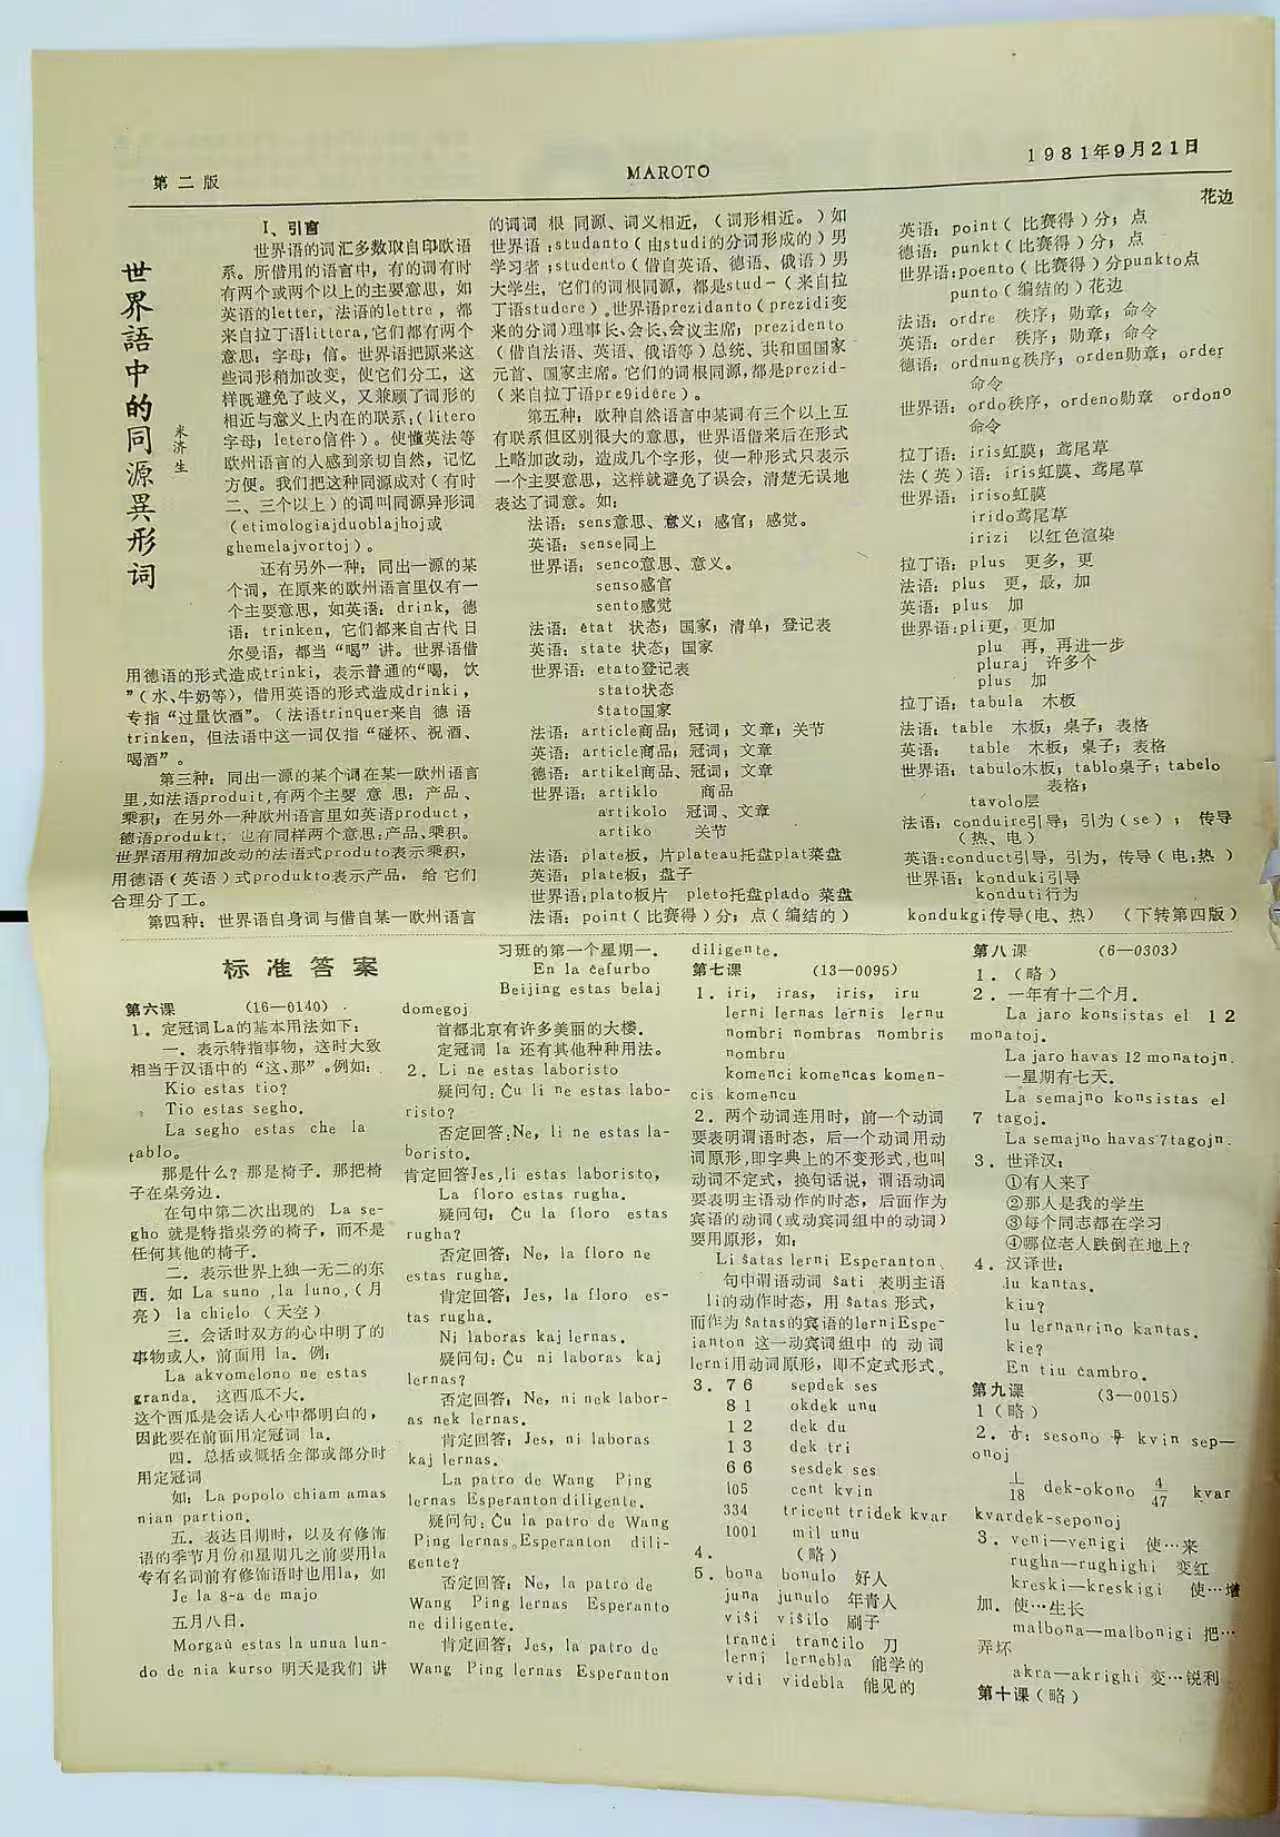 第二版
MAROTO
1981年9月21日
世界語中的同源異形词
米济生
I、引言
世界语的词汇多数取自印欧语
系。所借用的语言中，有的词有时
有两个或两个以上的主要意思，如
英语的letter，法语的lettre，都
来自拉丁语littera，它们都有两个
意思：字母；信。世界语把原来这
些词形稍加改变，使它们分工，这
样既避免了歧义，又兼顾了词形的
相近与意义上内在的联系：（litero
字母；letero信件）。使懂英法等
欧州语言的人感到亲切自然，记忆
方便。我们把这种同源成对（有时
二、三个以上）的词叫同源异形词
（etimologiajduoblajhoj或
ghemelajvortoj）。
还有另外一种：同出一源的某
个词，在原来的欧州语言里仅有一
个主要意思，如英语：drink，德
语：trinken，它们都来自古代日
尔曼语，都当“喝”讲。世界语借
用德语的形式造成trinki，表示普通的“喝，饮
”（水、牛奶等），借用英语的形式造成drinki，
专指“过量饮酒”。（法语trinquer来自 德 语
trinken，但法语中这一词仅指“碰杯、祝酒、
喝酒”。
第三种：同出一源的某个词在某一欧州语言
里，如法语produit，有两个主要 意 思：产品、
乘积；在另外一种欧州语言里如英语product，
德语produkt，也有同样两个意思：产品、乘积。
世界语用稍加改动的法语式produto表示乘积，
用德语（英语）式produkto表示产品，给它们
合理分了工。
第四种：世界语自身词与借自某一欧州语言
的词词 根 同源、词义相近，（词形相近。）如
世界语：studanto（由studi的分词形成的）男
学习者；studento（借自英语、德语、俄语）男
大学生，它们的词根同源，都是stud－（来自拉
丁语studere）。世界语prezidanto（prezidi变
来的分词）理事长、会长、会议主席；prezidento
（借自法语、英语、俄语等）总统、共和国国家
元首、国家主席。它们的词根同源，都是prezid-
（来自拉丁语pre9idére）。
第五种：欧种自然语言中某词有三个以上互
有联系但区别很大的意思，世界语借来后在形式
上略加改动，造成几个字形，使一种形式只表示
一个主要意思，这样就避免了误会，清楚无误地
表达了词意。如：
法语：sens意思、意义；感官；感觉。
英语：sense同上
世界语：senco意思、意义。
senso感官
sento感觉
法语：état 状态；国家；清单；登记表
英语：state 状态；国家
世界语：etato登记表
stato状态
ŝtato国家
法语：article商品；冠词；文章；关节
英语：article商品；冠词；文章
德语：artikel商品、冠词；文章
世界语：artiklo 商品
artikolo 冠词、文章
artiko 关节
法语：plate板，片plateau托盘plat菜盘
英语：plate板；盘子
世界语：plato板片 pleto托盘plado 菜盘
法语：point（比赛得）分；点（编结的）
花边
英语：point（比赛得）分；点
德语：punkt（比赛得）分；点
世界语：poento（比赛得）分punkto点
punto（编结的）花边
法语：ordre 秩序；勋章；命令
英语：order 秩序；勋章；命令
德语：ordnung秩序，orden勋章；order
命令
世界语：ordo秩序，ordeno勋章 ordono
命令
拉丁语：iris虹膜；鸢尾草
法（英）语：iris虹膜、鸢尾草
世界语：iriso虹膜
irido鸢尾草
irizi 以红色渲染
拉丁语：plus 更多，更
法语：plus 更，最，加
英语：plus 加
世界语：pli更，更加
plu 再，再进一步
pluraj 许多个
plus 加
拉丁语：tabula 木板
法语：table 木板；桌子；表格
英语： table 木板；桌子；表格
世界语：tabulo木板；tablo桌子；tabelo
表格；
tavolo层
法语：conduire引导；引为（se）； 传导
（热、电）
英语：conduct引导，引为，传导（电；热）
世界语：konduki引导
konduti行为
kondukgi传导（电、热） （下转第四版）
标准答案
第六课 （16—0140）
1．定冠词La的基本用法如下：
一．表示特指事物，这时大致
相当于汉语中的“这、那”。例如：
Kio estas tio?
Tio estas segho.
La segho estas che la
tablo。
那是什么？那是椅子．那把椅
子在桌旁边．
在句中第二次出现的 La se-
gho 就是特指桌旁的椅子，而不是
任何其他的椅子．
二．表示世界上独一无二的东
西．如 La suno ,la luno,（月
亮）la chielo（天空）
三．会话时双方的心中明了的
事物或人，前面用 la．例：
La akvomelono ne estas
granda． 这西瓜不大．
这个西瓜是会话人心中都明白的，
因此要在前面用定冠词 la．
四．总括或慨括全部或部分时
用定冠词
如：La popolo chiam amas
nian partion.
五．表达日期时，以及有修饰
语的季节月份和星期几之前要用la
专有名词前有修饰语时也用la，如
Je la 8-a de majo
五月八日．
Morgaŭ estas la unua lun-
do de nia kurso 明天是我们 讲
习班的第一个星期一．
En la ĉefurbo
Beijing estas belaj
domegoj
首都北京有许多美丽的大楼．
定冠词 la 还有其他种种用法。
2．Li ne estas laboristo
疑问句：Ĉu li ne estas labo-
risto?
否定回答：Ne，li ne estas la-
boristo.
肯定回答Jes，li estas laboristo，
La floro estas rugha．
疑问句：Ĉu la floro estas
rugha?
否定回答：Ne，la floro ne
estas rugha．
肯定回答：Jes，la floro es-
tas rugha．
Ni laboras kaj lernas．
疑问句：Ĉu ni laboras kaj
lernas?
否定回答：Ne，ni nek labor-
as nek lernas．
肯定回答：Jes，ni laboras
kaj lernas．
La patro de Wang Ping
lernas Esperanton diligente．
疑问句：Ĉu la patro de Wang
Ping lernas。Esperanton dili-
gente?
否定回答：Ne，la patro de
Wang Ping lernas Esperanto
ne diligente．
肯定回答：Jes，la patro de
Wang Ping lernas Esperanton
diligente．
第七课 （13—0095）
1．iri， iras， iris， iru
lerni lernas lernis lernu
nombri nombras nombris
nombru
komenci komencas komen-
cis komencu
2．两个动词连用时，前一个动词
要表明谓语时态，后一个动词用动
词原形，即字典上的不变形式，也叫
动词不定式，换句话说，谓语动词
要表明主语动作的时态，后面作为
宾语的动词（或动宾词组中的动词）
要用原形，如：
Li ŝatas lerni Esperanton．
句中谓语动词 ŝati 表明主语
li的动作时态，用 ŝatas 形式，
而作为 ŝatas的宾语的lerniEspe-
ianton 这一动宾词组中 的 动 词
lerni用动词原形，即不定式形式。
3．76 sepdek ses
81 okdek unu
12 dek du
13 dek tri
66 sesdek ses
105 cent kvin
334 tricent tridek kvar
1001 mil unu
4． （略）
5．bona bonulo 好人
juna junulo 年青人
viŝi viŝilo 刷子
tranĉi tranĉilo 刀
lerni lernebla 能学的
vidi videbla 能见的
第八课 （6—0303）
1．（略）
2．一年有十二个月．
La jaro konsistas el 12
monatoj．
La jaro havas 12 monatojn．
一星期有七天．
La semajno konsistas el
7 tagoj．
La semajno havas7tagojn．
3．世译汉：
①有人来了
②那人是我的学生
③每个同志都在学习
④哪位老人跌倒在地上？
4．汉译世：
lu kantas．
kiu?
lu lernanrino kantas．
kie?
En tiu ĉambro．
第九课 （3—0015）
1（略）
2． sesono kvin sep—
onoj
1/18 dek-okono 4/47 kvar
kvardek-seponoj
3．veni—venigi 使…来
rugha—rughighi 变红
kreski—kreskigi 使…增
加．使…生长
malbona—malbonigi 把…
弄坏
akra—akrighi 变…锐利
第十课（略）